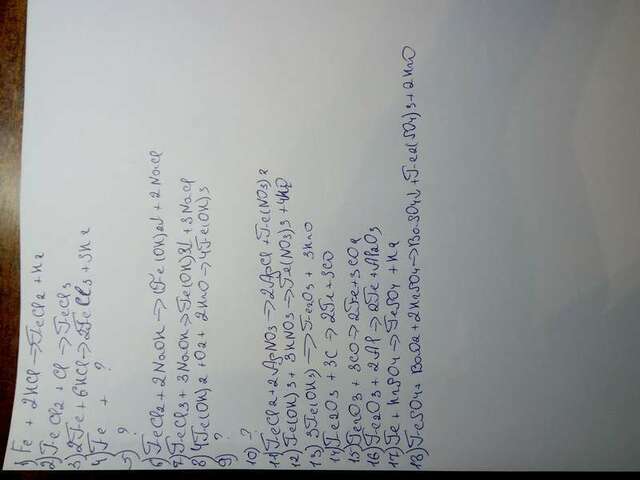 1) Fe + 2HCl → FeCl2 + H2
2) FeCl2 + Cl → FeCl3
3) 2Fe + 6HCl → 2FeCl3 + 3H2
4) Fe + ?
5) ?
6) FeCl2 + 2NaOH → Fe(OH)2↓ + 2NaCl
7) FeCl3 + 3NaOH → Fe(OH)3↓ + 3NaCl
8) 4Fe(OH)2 + O2 + 2H2O → 4Fe(OH)3
9) ?
10) ?
11) FeCl2 + 2AgNO3 → 2AgCl + Fe(NO3)2
12) Fe(OH)3 + 3HNO3 → Fe(NO3)3 + 4H2O
13) 3Fe(OH3) → Fe2O3 + 3H2O
14) Fe2O3 + 3C → 2Fe + 3CO
15) Fe2O3 + 3CO → 2Fe + 3CO2
16) Fe2O3 + 2Al → 2Fe + Al2O3
17) Fe + H2SO4 → FeSO4 + H2
18) FeSO4 + BaO2 + 2H2SO4 → BaSO4↓ + Fe2(SO4)3 + 2H2O